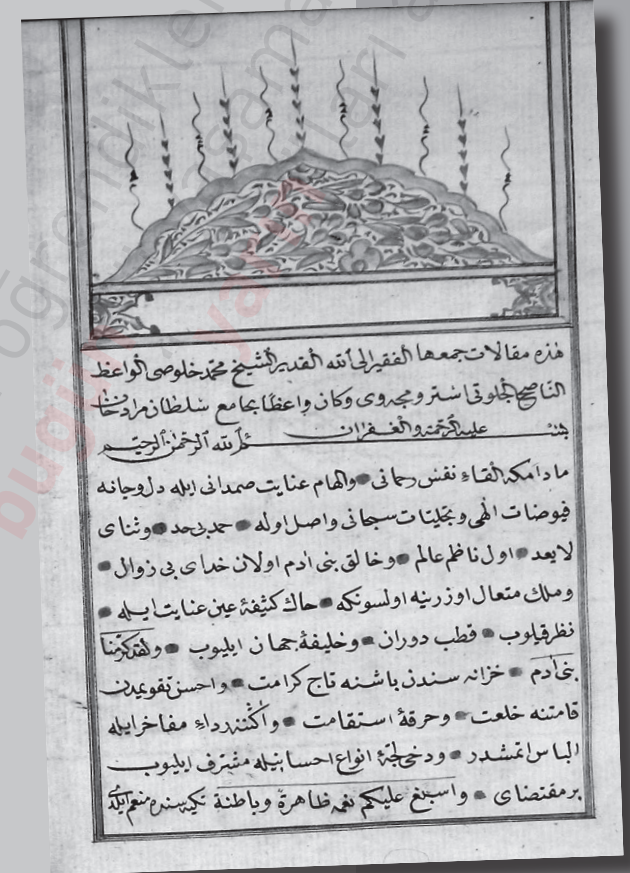 هذه مقالات جمعها الفقير الى الله القدير الشيخ محمد خلوصى الواعظ
الناصح الخلوتى اشترومجه وى وكان واعظا بجامع سلطان مراد خان
عليه الرحمة والغفران بسم الله الرحمن الرحيم
مادامكه القاء نفس رحمانى والهام عنايت صمدانى ايله دل وجانه
فيوضات الهى وتجليات سبحانى واصل اوله حمد بى حد وثناى
لايعد اول ناظم عالم وخالق بنى ادم اولان خداى بى زوال
وملك متعال اوزرينه اولسونكه خاك كثيفهٔ عين عنايت ايله
نظر قيلوب قطب دوران وخليفهٔ جهان ايليوب ولقد كرمنا
بنى ادم خزانه سندن باشنه تاج كرامت واحسن تقويمدن
قامتنه خلعت وخرقهٔ استقامت واكتنه رداء مفاخر ايله
الباس اتمشدر ودخى انواع احسانيله مشرف ايليوب
بر مقتضاى واسبغ عليكم نعمه ظاهرة وباطنة تكيه سنده منعم
bugün
yarın
öğrendikler